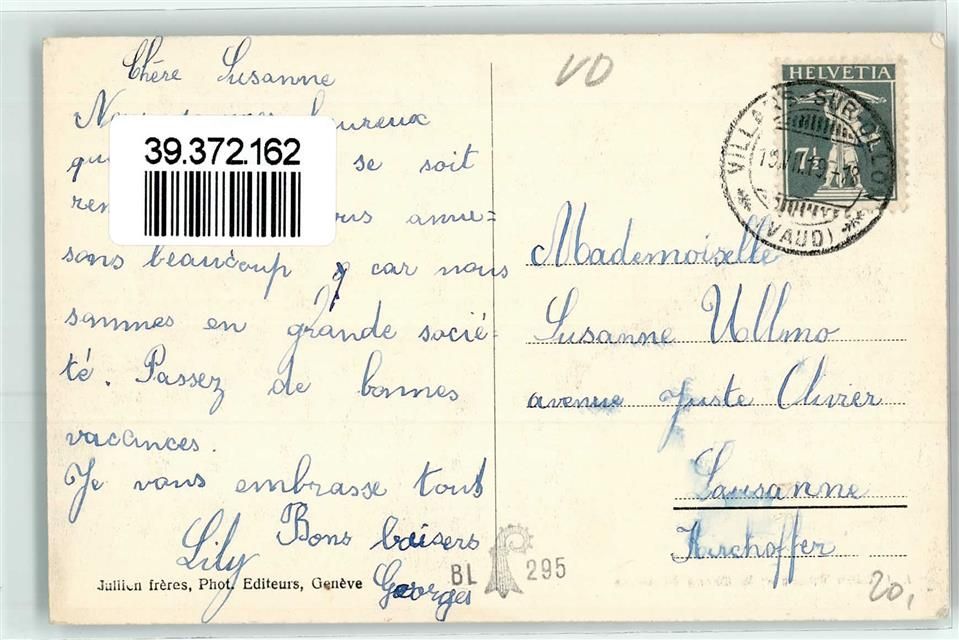 Chère Susanne
heureux
39.372.162
se soit
amu=
sons beaucoup car nous
sommes en grande socié=
té. Passez de bonnes
vacances.
Je vous embrasse tous
Lily
Bons baisers
Georges
Jullien frères, Phot. Editeurs, Genève
BL 295
VD
HELVETIA
7½
VILLARS-SUR-OLLON
(VAUD)
Mademoiselle
Susanne Ullmo
avenue Juste Olivier
Lausanne
Kirchoffer
20,